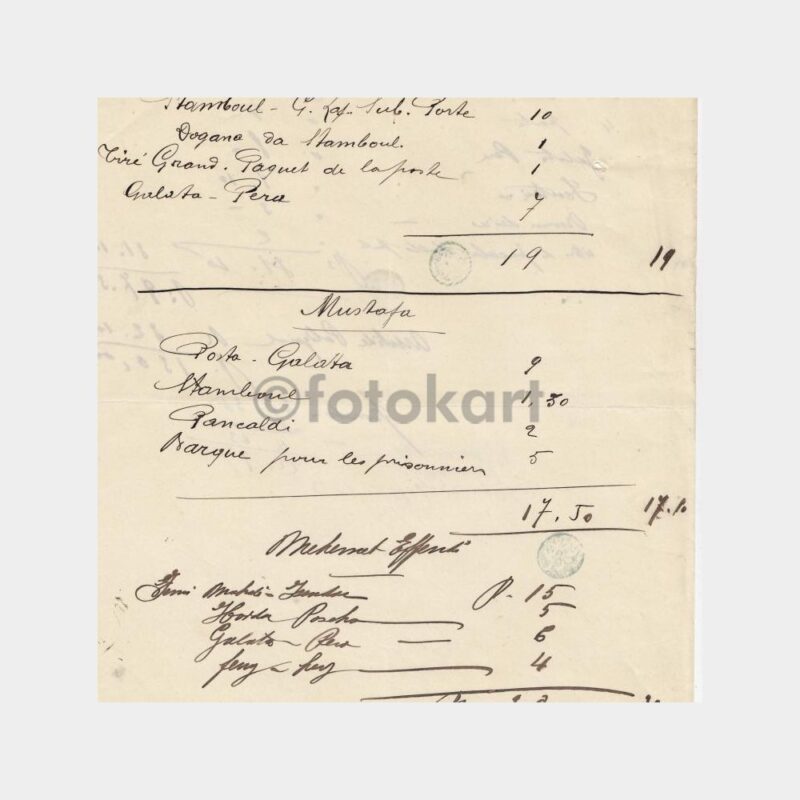 Stamboul - G. Sub. Porte 10
Dogana da Stamboul. 1
Tiré Grand. Paquet de la poste 1
Galata - Pera 7
19 19
Mustafa
Posta - Galata 9
Stamboul 1,50
Pancaldi 2
Barque pour les prisonniers 5
17,50 17.
©fotokart
Mehemet Effendi
P. 15
Haida Pascha 5
Galata - Pera 6
4